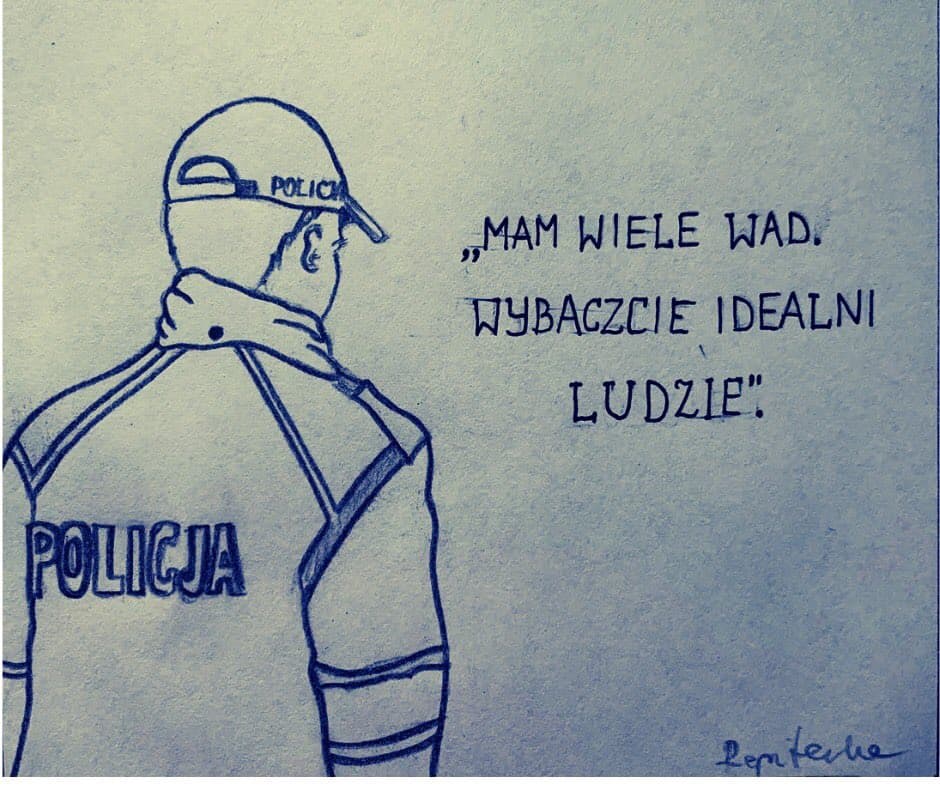 POLICJ
„MAM WIELE WAD.
WYBACZCIE IDEALNI
LUDZIE”.
POLICJA